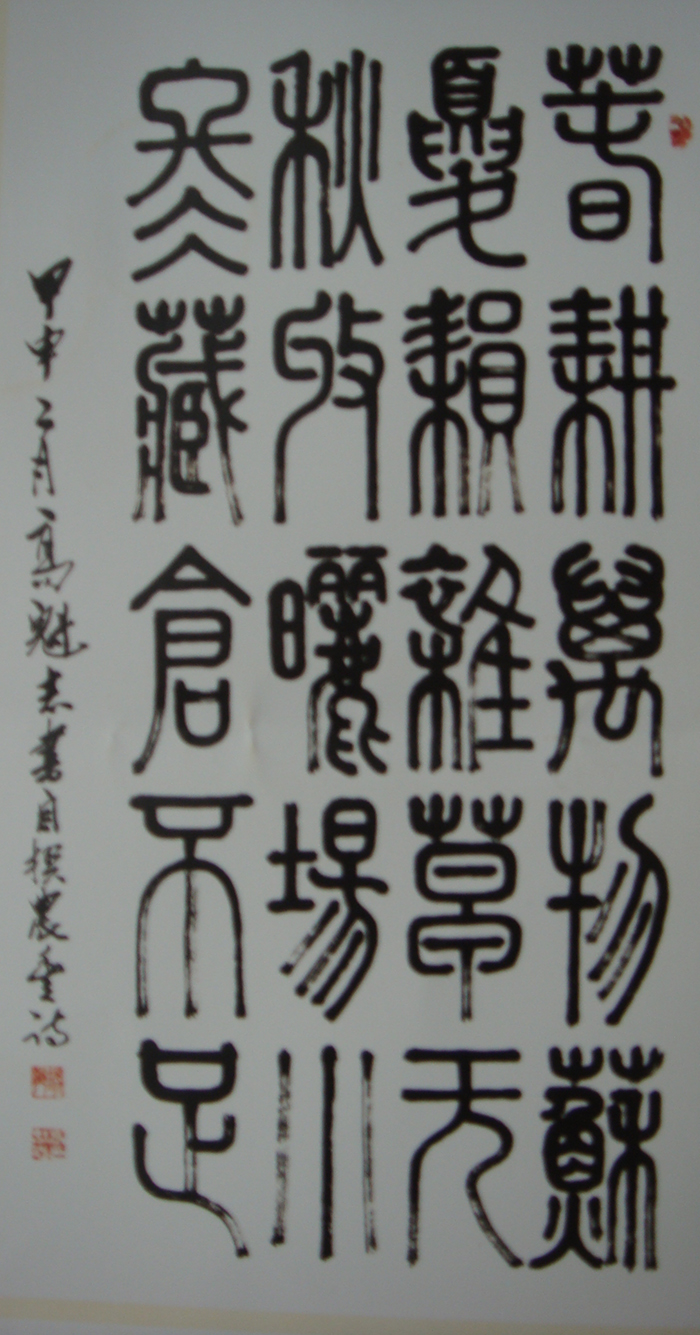 春耕萬物蘇
夏耘雜草无
秋收曬場小
冬藏倉不足
甲申二月高魁志書自撰農诗